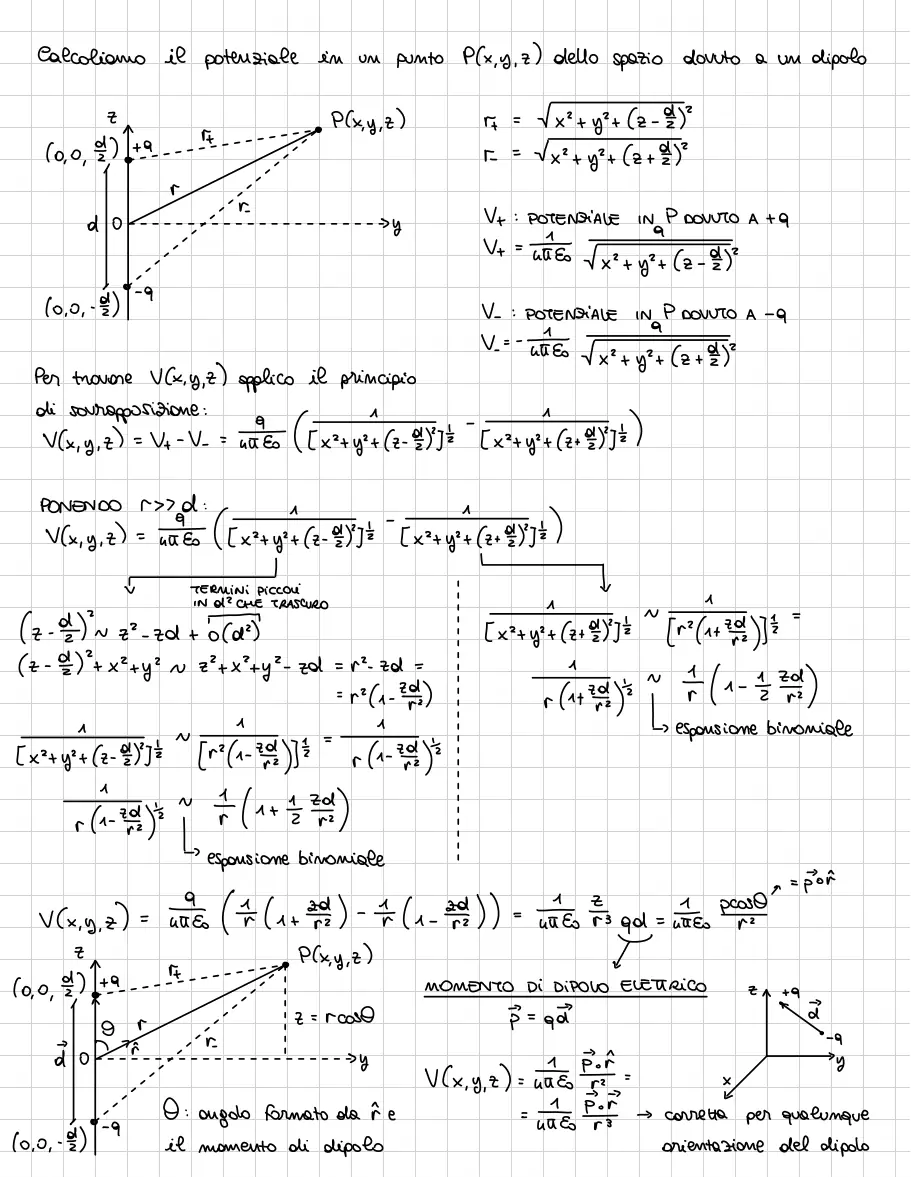 Calcoliamo il potenziale in un punto P(x,y,z) dello spazio dovuto a un dipolo
z
P(x,y,z)
(0,0,d/2)
+q
r₊
r
r₋
d
0
y
(0,0,-d/2)
-q
r₊ = √(x²+y²+(z-d/2)²)
r₋ = √(x²+y²+(z+d/2)²)
V₊ : POTENZIALE IN P DOVUTO A +q
V₊ = 1/4πε₀ q/√(x²+y²+(z-d/2)²)
V₋ : POTENZIALE IN P DOVUTO A -q
V₋ = - 1/4πε₀ q/√(x²+y²+(z+d/2)²)
Per trovare V(x,y,z) applico il principio
di sovrapposizione:
V(x,y,z) = V₊ - V₋ = q/4πε₀ (1/[x²+y²+(z-d/2)²]^½ - 1/[x²+y²+(z+d/2)²]^½)
PONENDO r>>d:
V(x,y,z) = q/4πε₀ (1/[x²+y²+(z-d/2)²]^½ - 1/[x²+y²+(z+d/2)²]^½)
TERMINI PICCOLI
IN d² CHE TRASCURO
(z-d/2)² ~ z²-zd + o(d²)
(z-d/2)²+x²+y² ~ z²+x²+y²-zd = r²-zd =
= r²(1-zd/r²)
1/[x²+y²+(z-d/2)²]^½ ~ 1/[r²(1-zd/r²)]^½ = 1/r(1-zd/r²)^½
1/r(1-zd/r²)^½ ~ 1/r (1+1/2 zd/r²)
→ espansione binomiale
1/[x²+y²+(z+d/2)²]^½ ~ 1/[r²(1+zd/r²)]^½ =
1/r(1+zd/r²)^½ ~ 1/r (1-1/2 zd/r²)
→ espansione binomiale
V(x,y,z) = q/4πε₀ (1/r (1+zd/r²) - 1/r (1-zd/r²)) = 1/4πε₀ z/r³ qd = 1/4πε₀ pcosθ/r²
= p⃗∘r̂
z
P(x,y,z)
(0,0,d/2)
+q
r₊
θ
r
r̂
r₋
z = rcosθ
d⃗
0
y
(0,0,-d/2)
-q
θ: angolo formato da r̂ e
il momento di dipolo
MOMENTO DI DIPOLO ELETTRICO
p⃗ = qd⃗
V(x,y,z) = 1/4πε₀ p⃗∘r̂/r² =
= 1/4πε₀ p⃗∘r⃗/r³ → corretta per qualunque
orientazione del dipolo
z
+q
d⃗
-q
y
x